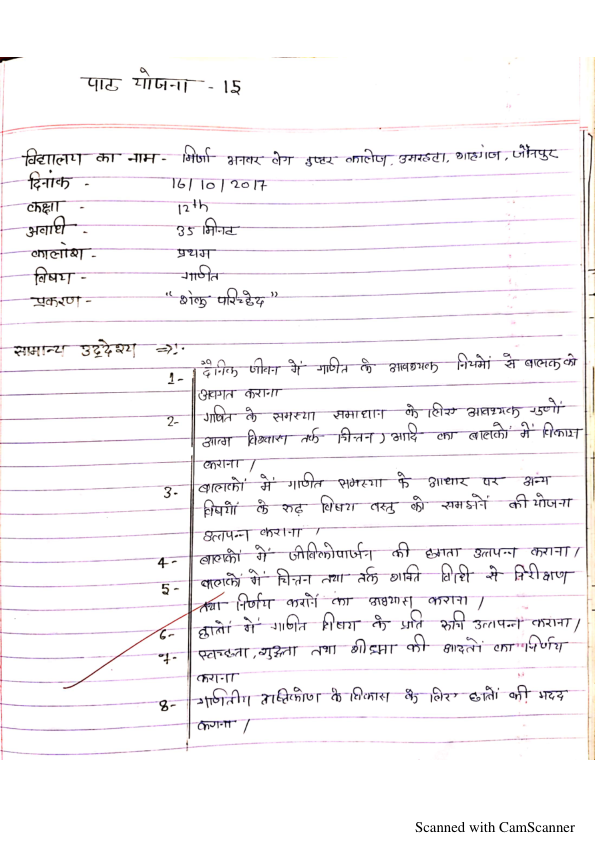 पाठ योजना - 15
विद्यालय का नाम - मिर्जा अनवर बेग इण्टर कालेज, उमरछा, शाहगंज, जौनपुर
दिनांक - 16/10/2017
कक्षा - 12th
अवधि - 35 मिनट
कालांश - प्रथम
विषय - गणित
प्रकरण - "शंकु परिच्छेद"
सामान्य उद्देश्य =>:-
1- दैनिक जीवन में गणित के आवश्यक नियमों से बालक को
अवगत कराना
2- गणित के समस्या समाधान के लिए आवश्यक गुणों
आत्म विश्वास तर्क चिन्तन) आदि का बालकों में विकास
कराना /
3- बालकों में गणित समस्या के आधार पर अन्य
विषयों के रूढ़ विषय वस्तु को समझने की योजना
उत्पन्न कराना /
4- बालकों में जीविकोपार्जन की क्षमता उत्पन्न कराना /
5- बालकों में चिन्तन तथा तर्क शक्ति विधि से निरीक्षण
तथा निर्णय कराने का अभ्यास कराना /
6- छात्रों में गणित विषय के प्रति रूचि उत्पन्न कराना /
7- स्वच्छता, शुद्धता तथा शीघ्रता की आदतों का निर्णय
कराना
8- गणितीय दृष्टिकोण के विकास के लिए छात्रों की मदद
करना /
Scanned with CamScanner